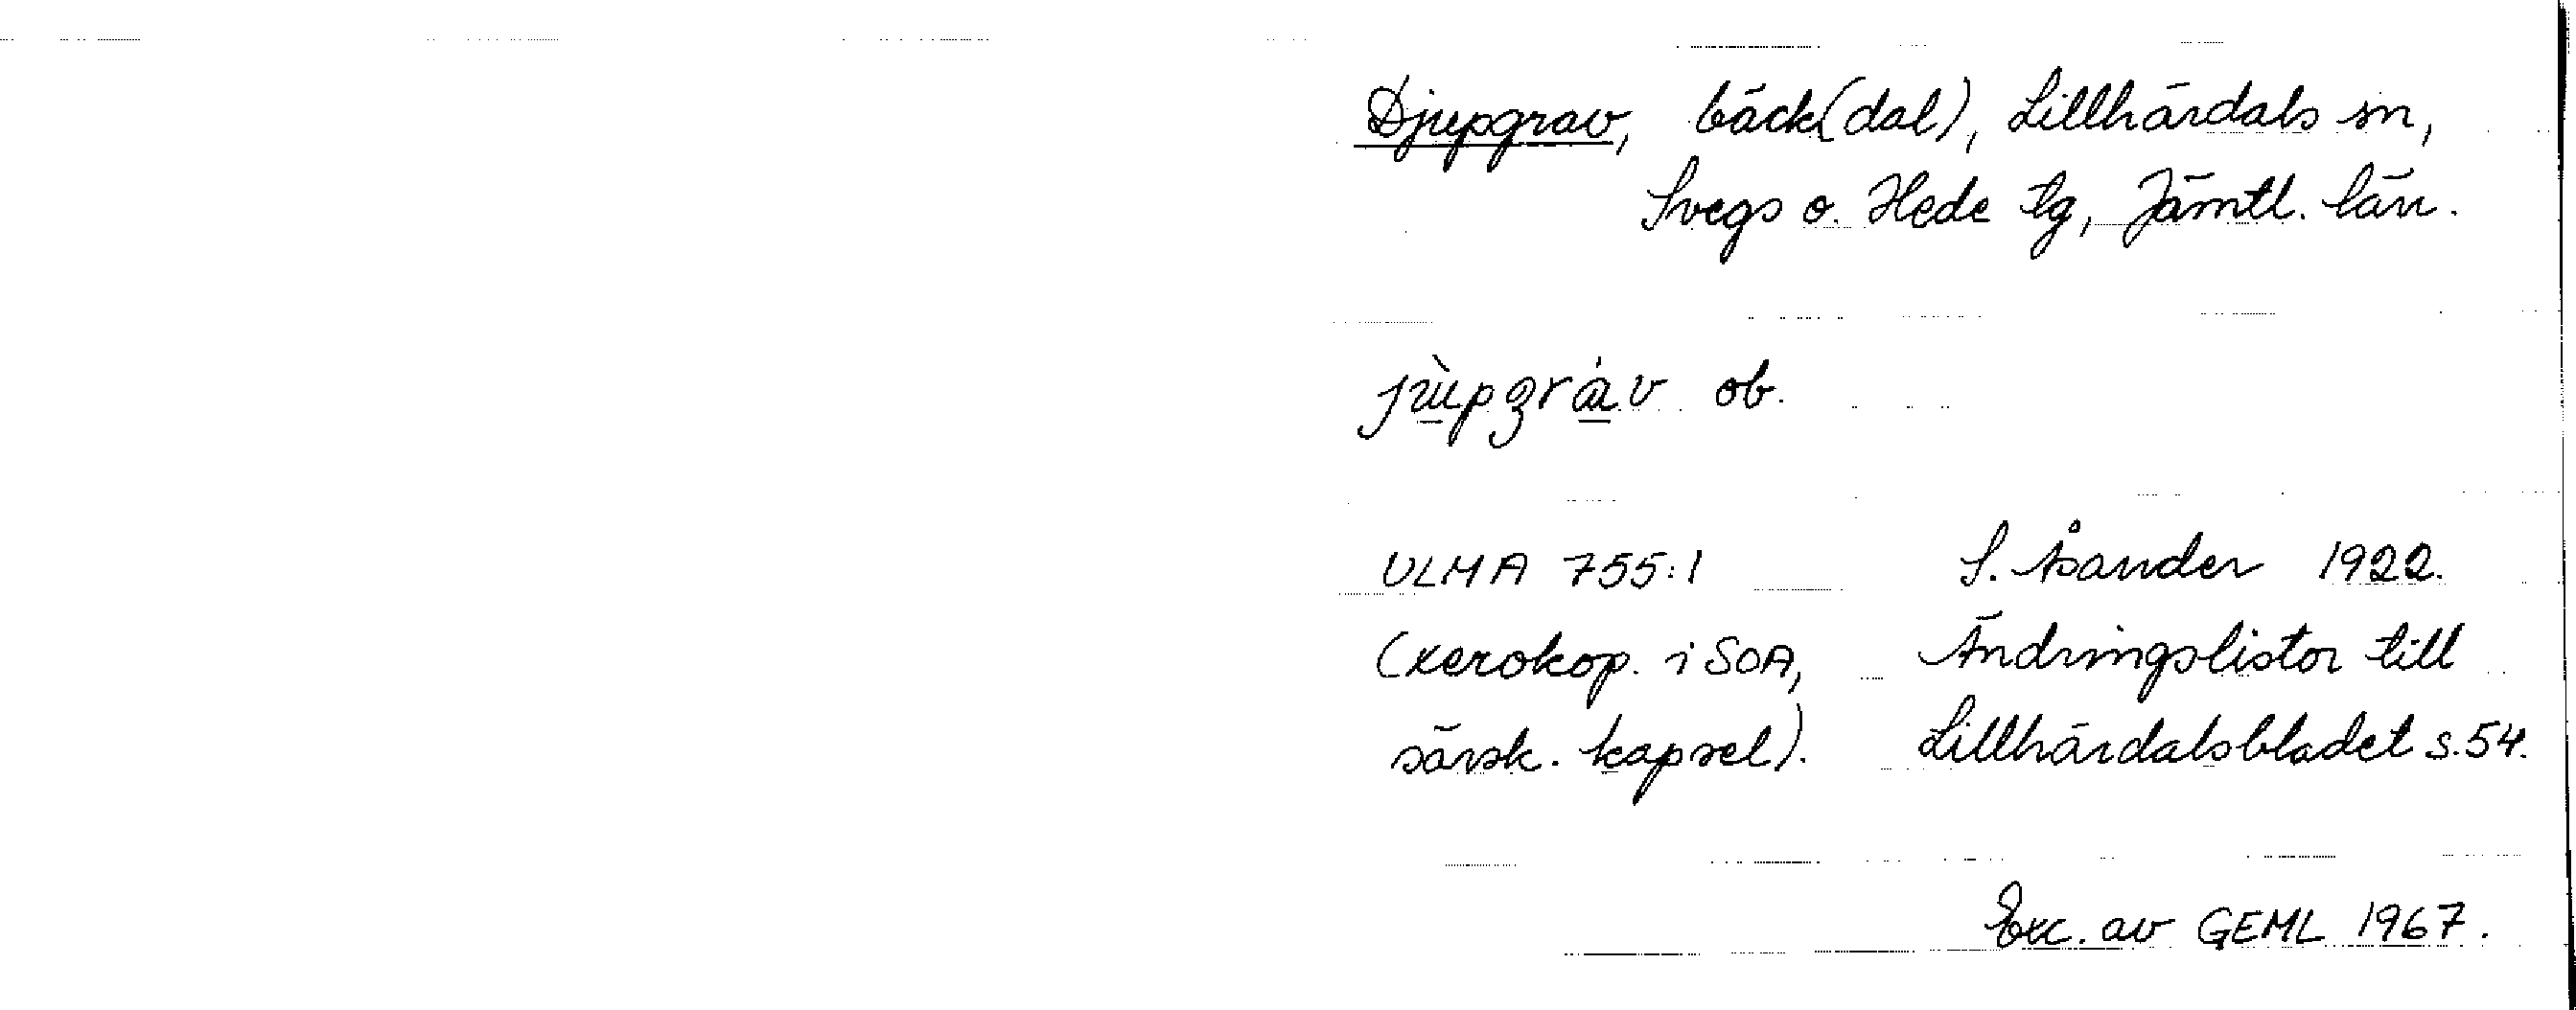 Djupgrav, bäck(dal), Lillhärdals sn,
Svegs o. Hede tg, Jämtl. län.
jʉ̀pgrȧv ob.
ULMA 755:1 S. Åsander 1922.
(xerokop. i SOA, Ändringslistor till
särsk. kapsel). Lillhärdalsbladet s.54.
Exc. av GEML 1967.